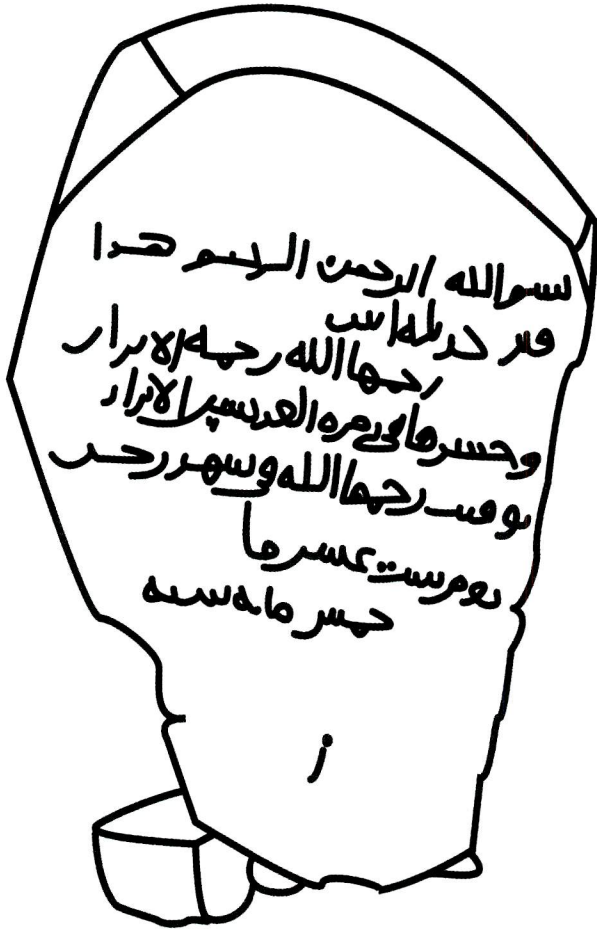 بسم الله الرحمن الرحيم هذا
قبر
رحمها الله رحمه الابرار
وحشرها في زمره الابرار
توفيت رحمها الله في شهر رجب
يوم ست عشر
خمس مايه سنه